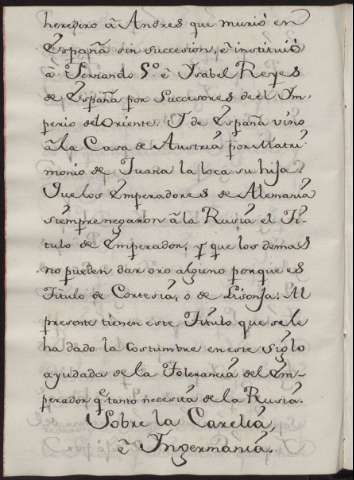 heredero â Andres que murio en
España sin succesion, ê instituiô
â Fernando 5º ê Isabel Reyes
de España por Succesores de el Im-
perio del Oriente. I de España vino
â la Casa de Austria por Matri-
monio de Juana la loca su hija.
Que los Emperadores de Alemania
siempre negaron â la Rusia el Ti-
tulo de Emperador, y que los demas
no pueden dar oro alguno porque es
Titulo de Cortesia, ô de Lisonja. Al
presente tienen este Titulo que se le
ha dado la costumbre en este siglo
ayudada de la Tolerancia del Em-
perador qe. tanto necesia de la Rusia.
Sobre la Carelia,
ê Ingermania.